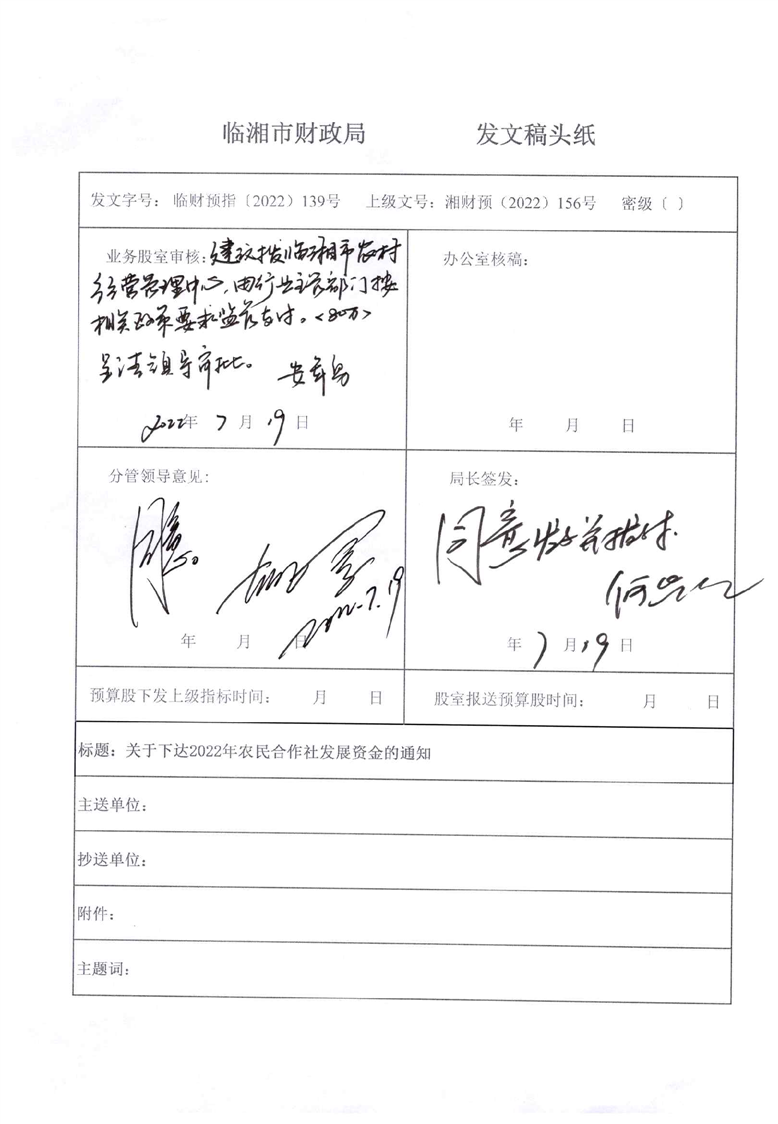 临湘市财政局 发文稿头纸
发文字号： 临财预指〔2022〕139号 上级文号：湘财预（2022）156号 密级〔 〕
业务股室审核：建议拨临湘市农村
经营管理中心，由行业主管部门按
相关政策要求监管支付。<80万>
呈请领导审批。
2022年 7 月 19 日
办公室核稿：
年 月 日
分管领导意见：
同意。
2022.7.19
年 月 日
局长签发：
同意
年 7 月 19 日
预算股下发上级指标时间： 月 日
股室报送预算股时间： 月 日
标题：关于下达2022年农民合作社发展资金的通知
主送单位：
抄送单位：
附件：
主题词：